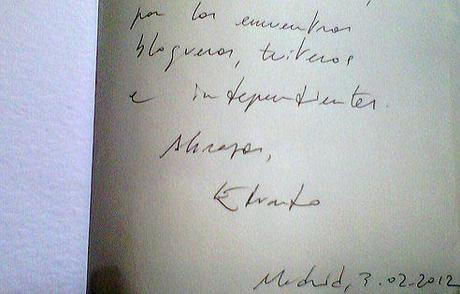 por los encuentros
blogueros, tuiteros
e independientes.
Abrazos,
Madrid, 3.02.2012